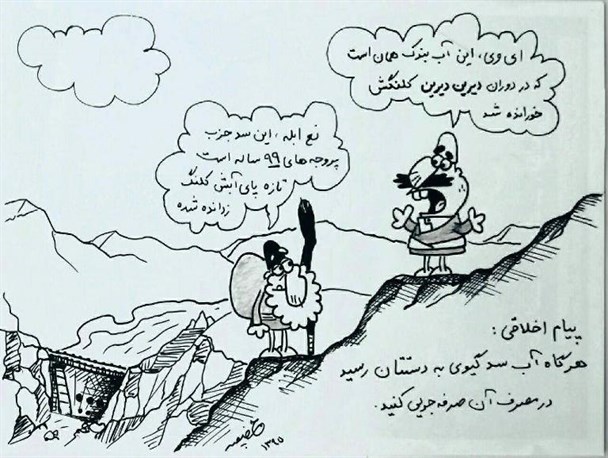 ای وی، این آب بندک همان است
که در دوران دیرین دیرین کلنگش
خورانده شد
نع ابله، این سد جزب
پروجه های ۹۹ ساله است
تازه پای آبش کلنگ
زدانده شده
پیام اخلاقی:
هرگاه آب سد گیوی به دستتان رسید
در مصرف آن صرفه جویی کنید.
۱۳۹۵